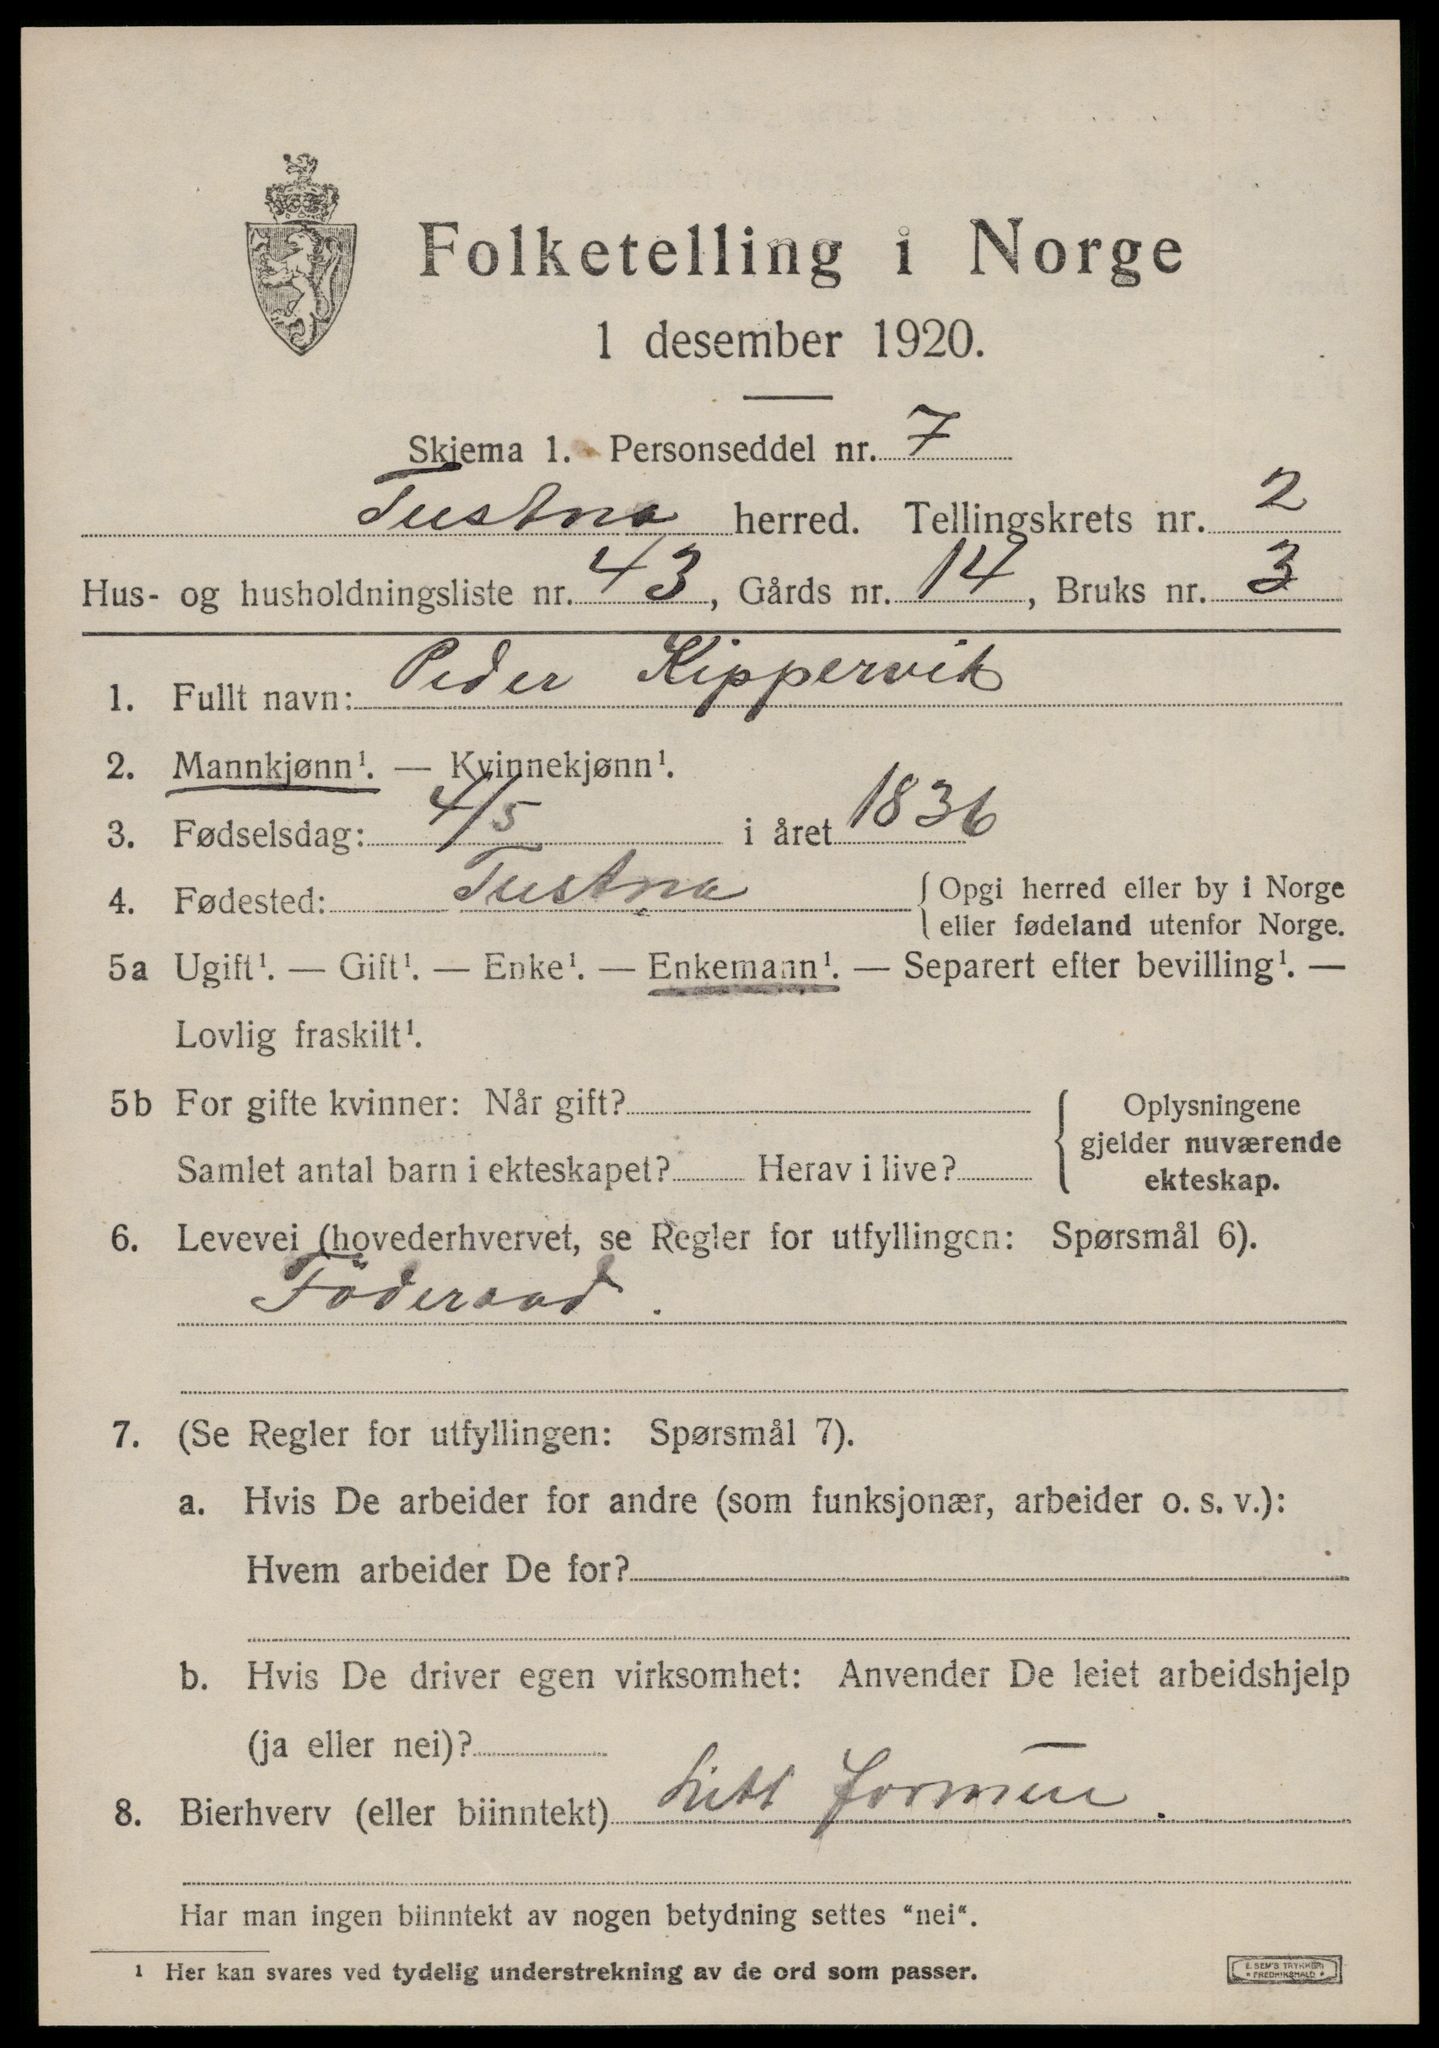 Folketelling i Norge
1 desember 1920.
Skjema 1. Personseddel nr. 7
Tustna herred. Tellingskrets nr. 2
Hus- og husholdningsliste nr. 43, Gårds nr. 14, Bruks nr. 3
1. Fullt navn: Peder Kippervik
2. Mannkjønn¹. — Kvinnekjønn¹.
3. Fødselsdag: 4/5 i året 1836
4. Fødested: Tustna { Opgi herred eller by i Norge
eller fødeland utenfor Norge.
5a Ugift¹. — Gift¹. — Enke¹. — Enkemann¹. — Separert efter bevilling¹. —
Lovlig fraskilt¹.
5b For gifte kvinner: Når gift?
Samlet antal barn i ekteskapet? Herav i live?
{ Oplysningene
gjelder nuværende
ekteskap.
6. Levevei (hovederhvervet, se Regler for utfyllingen: Spørsmål 6).
Föderaad.
7. (Se Regler for utfyllingen: Spørsmål 7).
a. Hvis De arbeider for andre (som funksjonær, arbeider o. s. v.):
Hvem arbeider De for?
b. Hvis De driver egen virksomhet: Anvender De leiet arbeidshjelp
(ja eller nei)?
8. Bierhverv (eller biinntekt) Litt formue.
Har man ingen biinntekt av nogen betydning settes "nei".
¹ Her kan svares ved tydelig understrekning av de ord som passer.
E. SEM'S TRYKKERI
FREDRIKSHALD